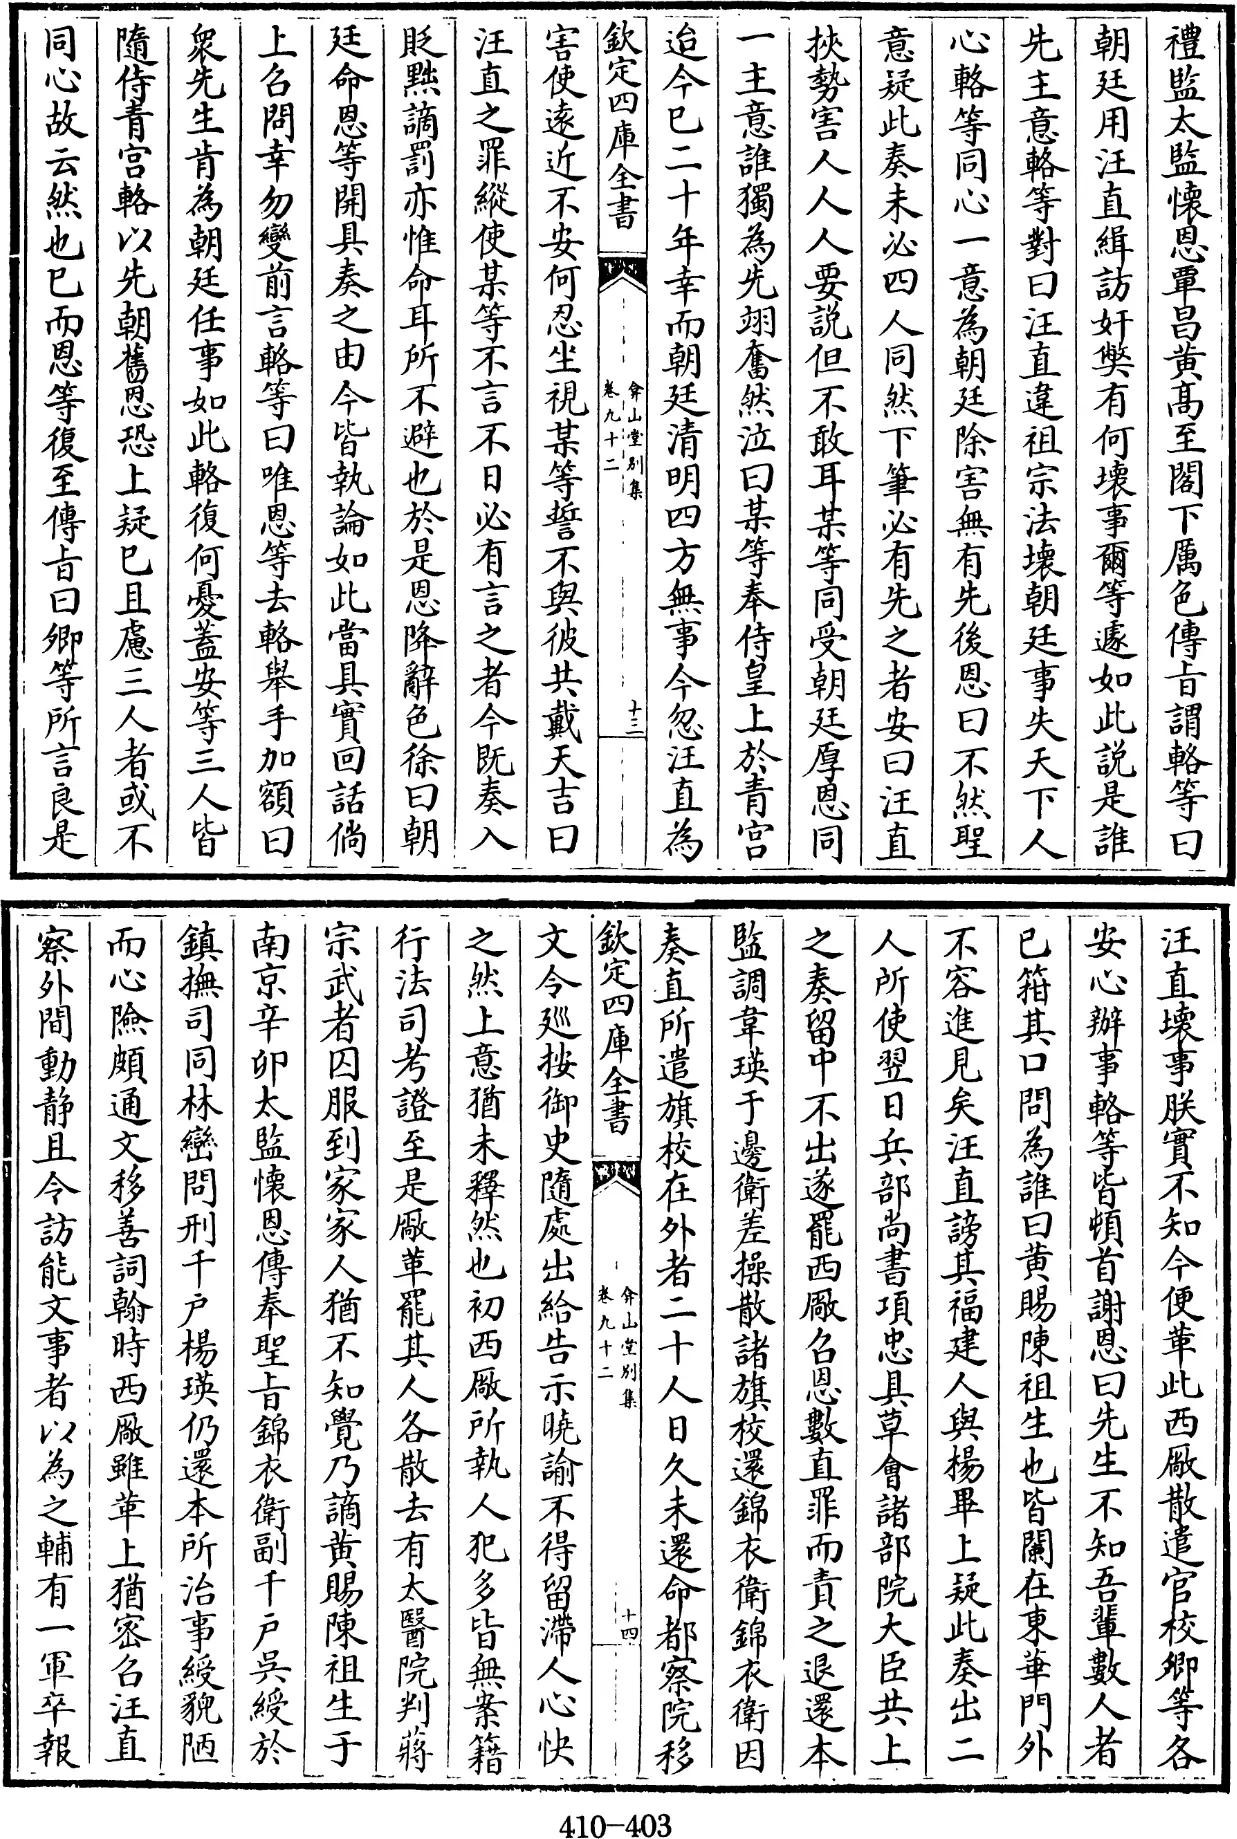 禮監太監懷恩覃昌黃高至閣下厲色傳㫖謂輅等曰
朝廷用汪直緝訪奸弊有何壊事爾等遽如此説是誰
先主意輅等對曰汪直違祖宗法壊朝廷事失天下人
心輅等同心一意為朝廷除害無有先後恩曰不然聖
意疑此奏未必四人同然下筆必有先之者安曰汪直
挾勢害人人人要説但不敢耳某等同受朝廷厚恩同
一主意誰獨為先翊奮然泣曰某等奉侍皇上於青宫
迨今已二十年幸而朝廷清明四方無事今忽汪直為
欽定四庫全書
弇山堂别集
卷九十二
十三
害使遠近不安何忍坐視某等誓不與彼共戴天吉曰
汪直之罪縱使某等不言不日必有言之者今既奏入
貶黜謫罰亦惟命耳所不避也於是恩降辭色徐曰朝
廷命恩等開具奏之由今皆執論如此當具實回話倘
上召問幸勿變前言輅等曰唯恩等去輅舉手加額曰
衆先生肯為朝廷任事如此輅復何憂蓋安等三人皆
隨侍青宫輅以先朝舊恩恐上疑已且慮三人者或不
同心故云然也已而恩等復至傳㫖曰卿等所言良是
汪直壊事朕實不知今便革此西厰散遣官校卿等各
安心辦事輅等皆頓首謝恩曰先生不知吾輩數人者
已箝其口問為誰曰黃賜陳祖生也皆闌在東華門外
不容進見矣汪直謗其福建人與楊畢上疑此奏出二
人所使翌日兵部尚書項忠具草會諸部院大臣共上
之奏留中不出遂罷西厰召恩數直罪而責之退還本
監調韋瑛于邊衛差操散諸旗校還錦衣衛錦衣衛因
奏直所遣旗校在外者二十人日久未還命都察院移
欽定四庫全書
弇山堂别集
卷九十二
十四
文令廵按御史隨處出給告示曉諭不得留滯人心快
之然上意猶未釋然也初西厰所執人犯多皆無案籍
行法司考證至是厰革罷其人各散去有太醫院判蔣
宗武者囚服到家家人猶不知覺乃謫黃賜陳祖生于
南京辛卯太監懷恩傳奉聖㫖錦衣衛副千户吳綬於
鎮撫司同林巒問刑千户楊瑛仍還本所治事綬貌陋
而心險頗通文移善詞翰時西厰雖革上猶密召汪直
察外間動静且令訪能文事者以為之輔有一軍卒報
410-403